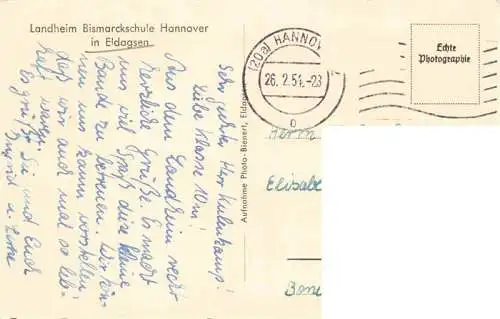 Landheim Bismarckschule Hannover
in Eldagsen
Sehr geehrter Herr Kulenkamp!
Liebe Klasse 10m!
Aus dem Landheim recht
herzliche Grüße. Es macht
uns viel Spaß diese kleine
Bande zu betreuen. Wir kön-
nen uns kaum vorstellen
daß wir auch mal so leb-
haft waren.
Es grüßt Sie und Euch
Ingrid u.
Aufnahme Photo-Bienert, Eldagsen
(20a) HANNOV
26. 2. 51.-23
Echte
Photographie
Herrn
Elisabe